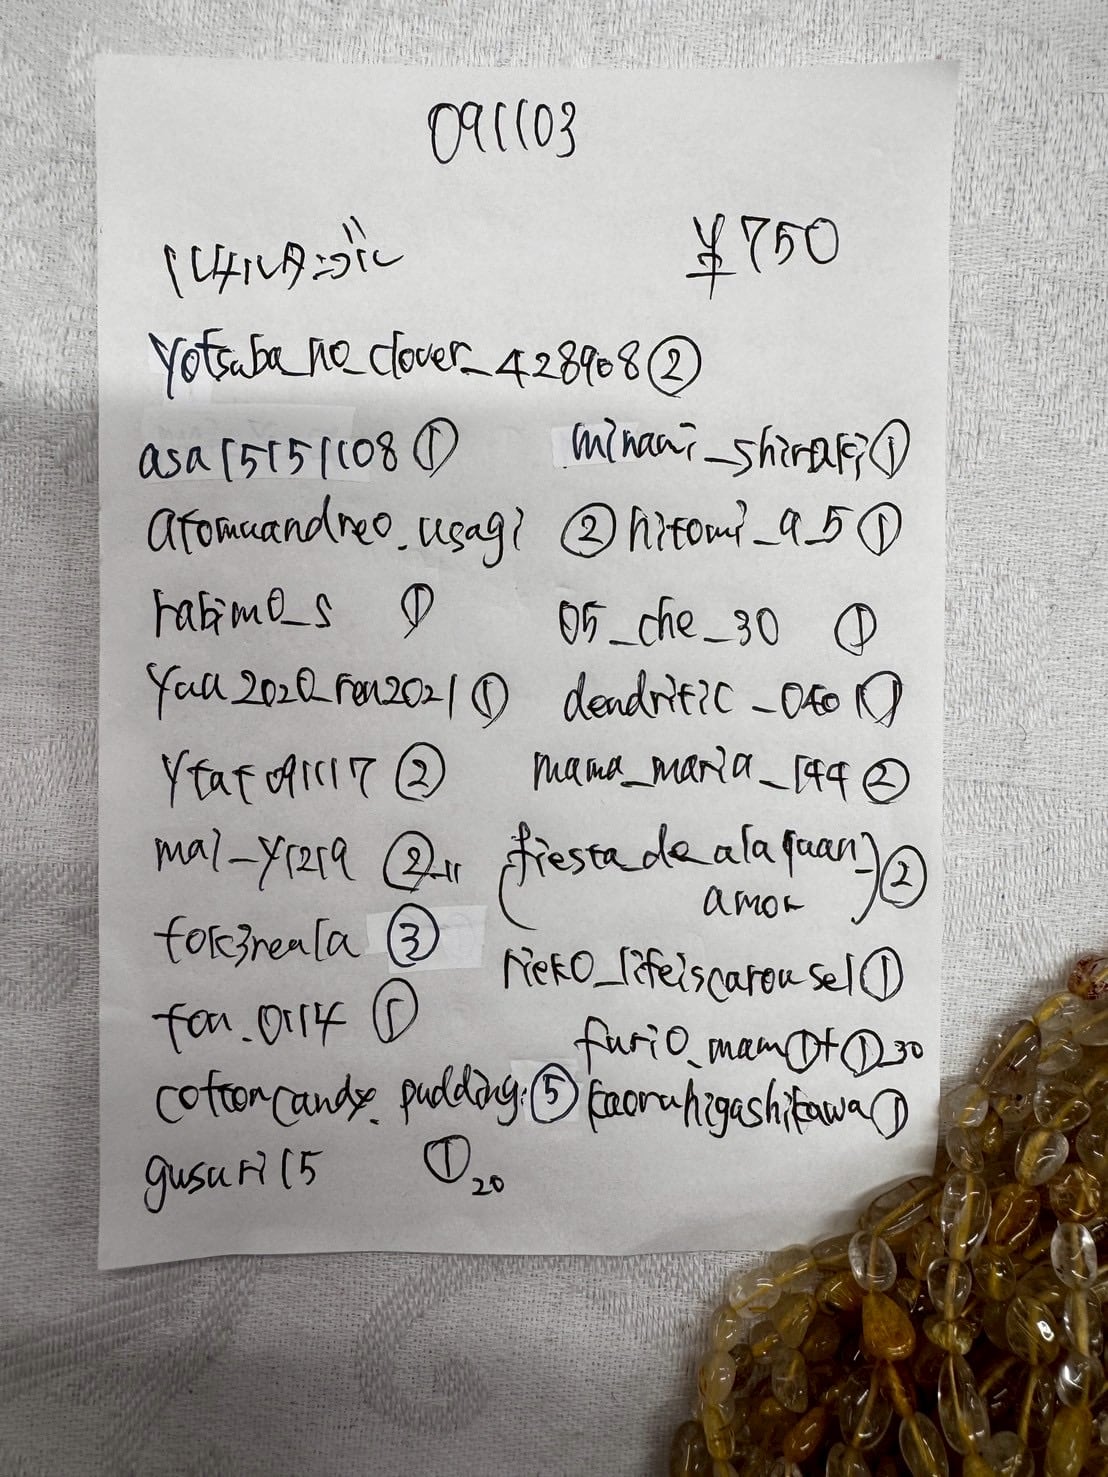 091103
ルチルタンブル ¥750
yotsuba_no_clover_428908 ②
asa15151108 ① minami_shiraki ①
atomuandreo_usagi ② hitomi_a_5 ①
rabimo_s ① 05_che_30 ①
yuu2020_ren2021 ① dendritic_040 ①
ytat091117 ② mama_maria_144 ②
mai_y1219 ② 11 (fiesta_de_ala_quan_
tok3reala ③ amor) ②
rieko_lifeiscarousel ①
ton_0114 ①
furio_mam ①+① 30
cottoncandy_pudding ⑤ kaoruhigashikawa ①
gusuri15 ① 20